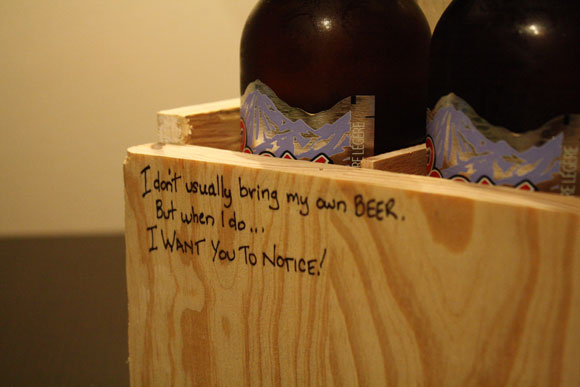 I don't usually bring my own BEER.
But when I do...
I WANT YOU TO NOTICE!
LEGERE